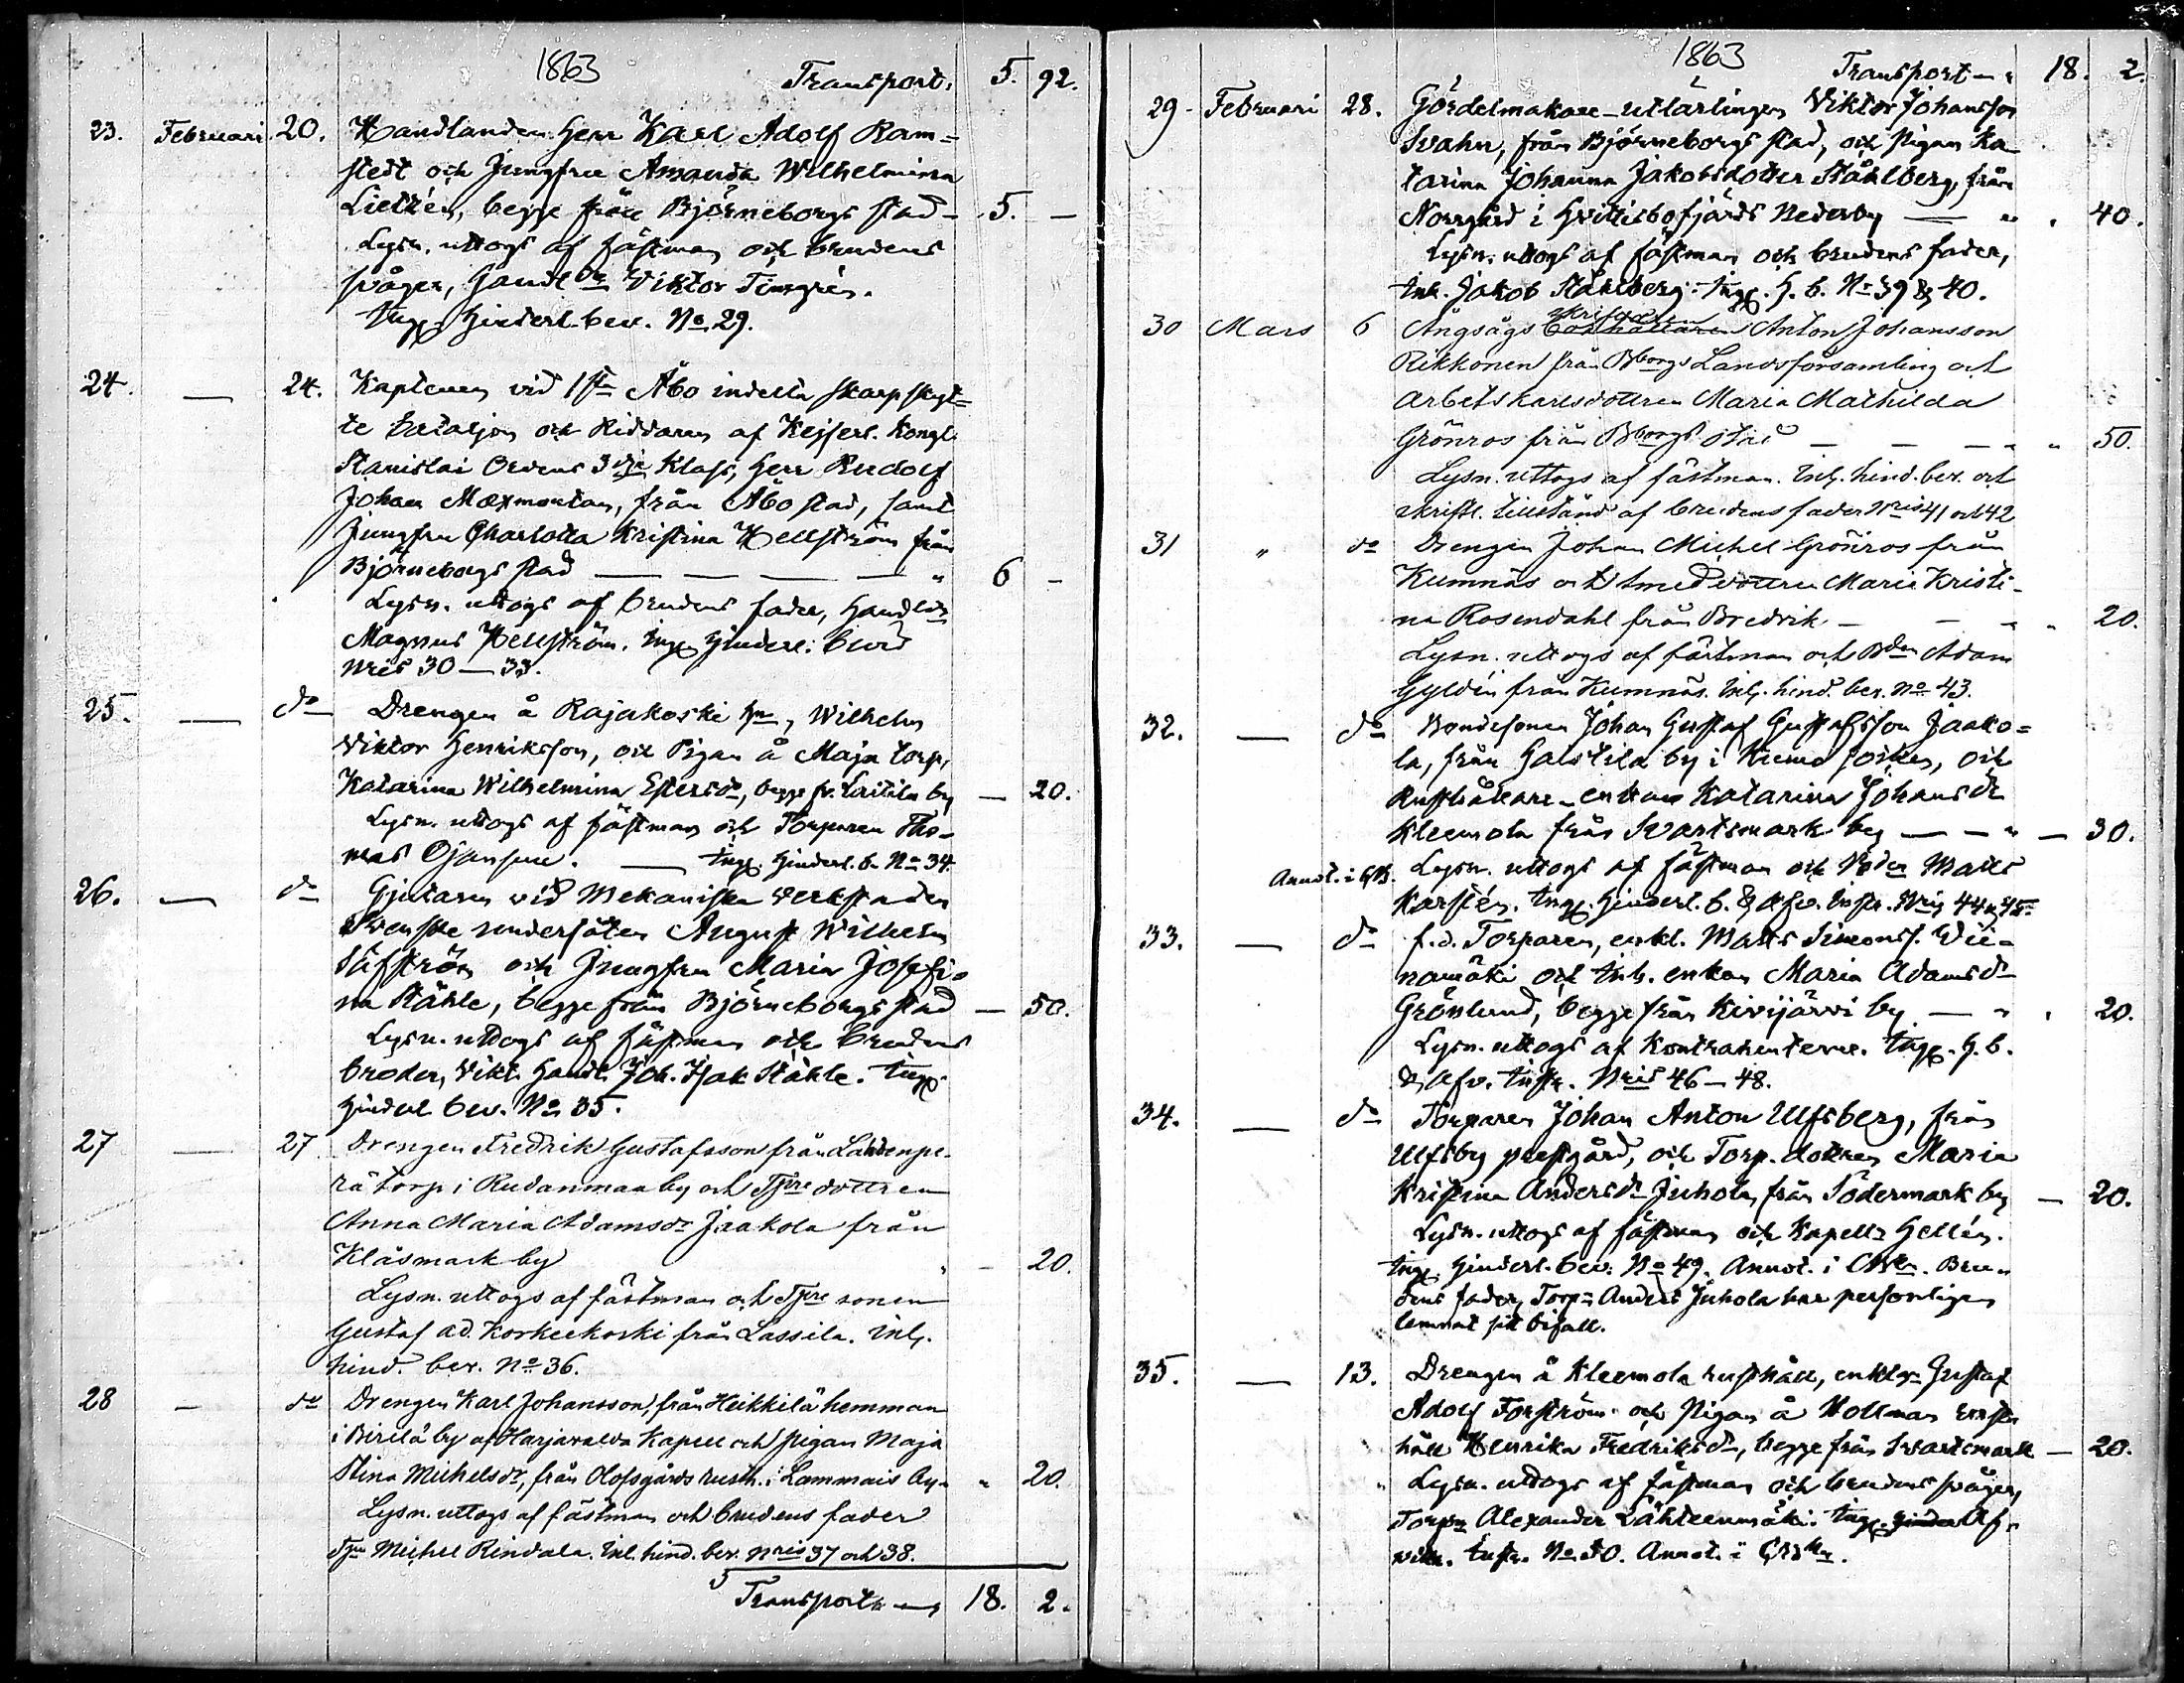 1863
Transport. 5. 92.
23. Februari 20. Handlanden Herr Karl Adolf Ram=
stedt och Jungfru Amanda Wilhelmina
Lietzén, begge från Björneborgs stad – 5. –
Lysn. uttogs af fästman och brudens
svåger, Handl:den Viktor Timgrén.
Ingg. Hinderl. bev. No 29.
24. — 24. Kaptenen vid 1sta Åbo indelta skarpskyt=
te bataljon och Riddaren af Kejserl. Kongl.
Stanislai Ordens 3dje Klass, Herr Rudolf
Johan Mexmontan, från Åbo stad, samt
Jungfru Charlotta Kristina Hellström från
Björneborgs stad — — — — " 6 –
Lysn. uttogs af brudens fader, Handl:den
Magnus Hellström. Ingg. Hinderl: bevis
Nris 30–33.
25. — do Drengen å Rajakoski hn, Wilhelm
Viktor Henriksson, och Pigan å Maja torp,
Katarina Wilhelmina Estersdr, begge fr. Lritila by — 20.
Lysn. uttogs af fästman och Torparen Tho-
mas Ojansuu. — Ingg. Hinderl. b. No 34.
26. — do Gjutaren vid Mekaniska verkstaden
Svenske undersåten August Wilhelm
Säfström och Jungfru Maria Josefi=
na Ståhle, begge från Björneborgs stad — 50.
Lysn. uttogs af fästman och brudens
broder, Vikt. Handl. Joh. Isak Ståhle. Ingg.
Hinderl. bev. No 35.
27 — 27 Drengen Fredrik Gustafsson från Lähdenpe-
rä torp i Rudanmaa by och Tpre dottren
Anna Maria Adamsdr Jaakola från
Klåsmark by " – 20.
Lysn. uttogs af fästman och Tpre sonen
Gustaf Ad. Korkeekoski från Lassila. Inl.
hind. bev. No 36.
28 – do Drengen Karl Johansson, från Heikkilä hemman
i Birilä by af Harjavalda Kapell och pigan Maja
Stina Michelsdr, från Olofsgårds rusth. i Lammais by – " 20.
Lysn. uttogs af fästman och brudens fader
Tpn Michel Rindala. Inl. hind. bev. Nris 37 och 38.
Transport 18. 2.
1863
Transport – " 18. 2.
29 - Februari 28. Gördelmakare-utlärlingen Viktor Johansson
Svahn, från Björneborgs stad, och Pigan Ka-
tarina Johanna Jakobsdotter Ståhlberg, från
Norrgård i Hvittisbofjärds Nederby — " . 40.
Lysn. uttogs af fästman och brudens fader,
Inh. Jakob Ståhlberg. Ingg. H. b. No 39 & 40.
30 Mars 6 Ångsågs skrifvaren bokhållaren Anton Johansson
Rikkonen från Bborgs Landsförsamling och
Arbetskarlsdottren Maria Mathilda
Grönros från Bborgs stad – – – " " 50.
Lysn. uttogs af fästman. Inl. hind. bev. och
skriftl. tillstånd af brudens fader Nris 41 och 42
31 " do Drengen Johan Michel Grönros från
Kumnäs och Smedsdottren Maria Kristi-
na Rosendahl från Bredvik – – " " 20.
Lysn. uttogs af fästman och Bden Adam
Gyldén från Kumnäs. Inl. hind. bev. No 43.
32. — do Bondesonen Johan Gustaf Gustafsson Jaako=
la, från Halstila by i Kiemo socken, och
Rusthållare-enkan Katarina Johansdr
Kleemola från Svartsmark by — – " – 30.
Annot. i K.B. Lysn. uttogs af fästman och Bden Matts
Karstén. Ingg. Hinderl. b. & Afv. Instr. Nris 44 & 45
33. — do f.d. Torparen, enkl. Matts Simonss. Vii-
namäki och Inh. enkan Maria Adamsdr
Grönlund, begge från Kivijärvi by — " . 20.
Lysn. uttogs af Kontrahenterne. Ingg. H. b.
& Afv. Instr. Nris 46–48.
34. — do Torparen Johan Anton Ulfsberg, från
Ulfsby prestgård, och Torp. dottren Maria
Kristina Andersdr Juhola, från Södermark by — 20.
Lysn. uttogs af fästman och Kapell: Hellén.
Ingg. Hinderl. bev. No 49. Annot. i CBken. Bru-
dens fader, Torp:n Anders Juhola har personligen
lemnat sitt bifall.
35. — 13. Drengen å Kleemola rusthåll, enkl:gn Gustaf
Adolf Forström och Pigan å Nollman rust-
håll Henrika Fredriksdr, begge från Svartsmark — 20.
Lysn. uttogs af fästman och brudens svåger,
Torpn Alexander Lähteenmäki. Ingg. Hinder Af-
vittr. Instr. No 50. Annot. i CBkn.